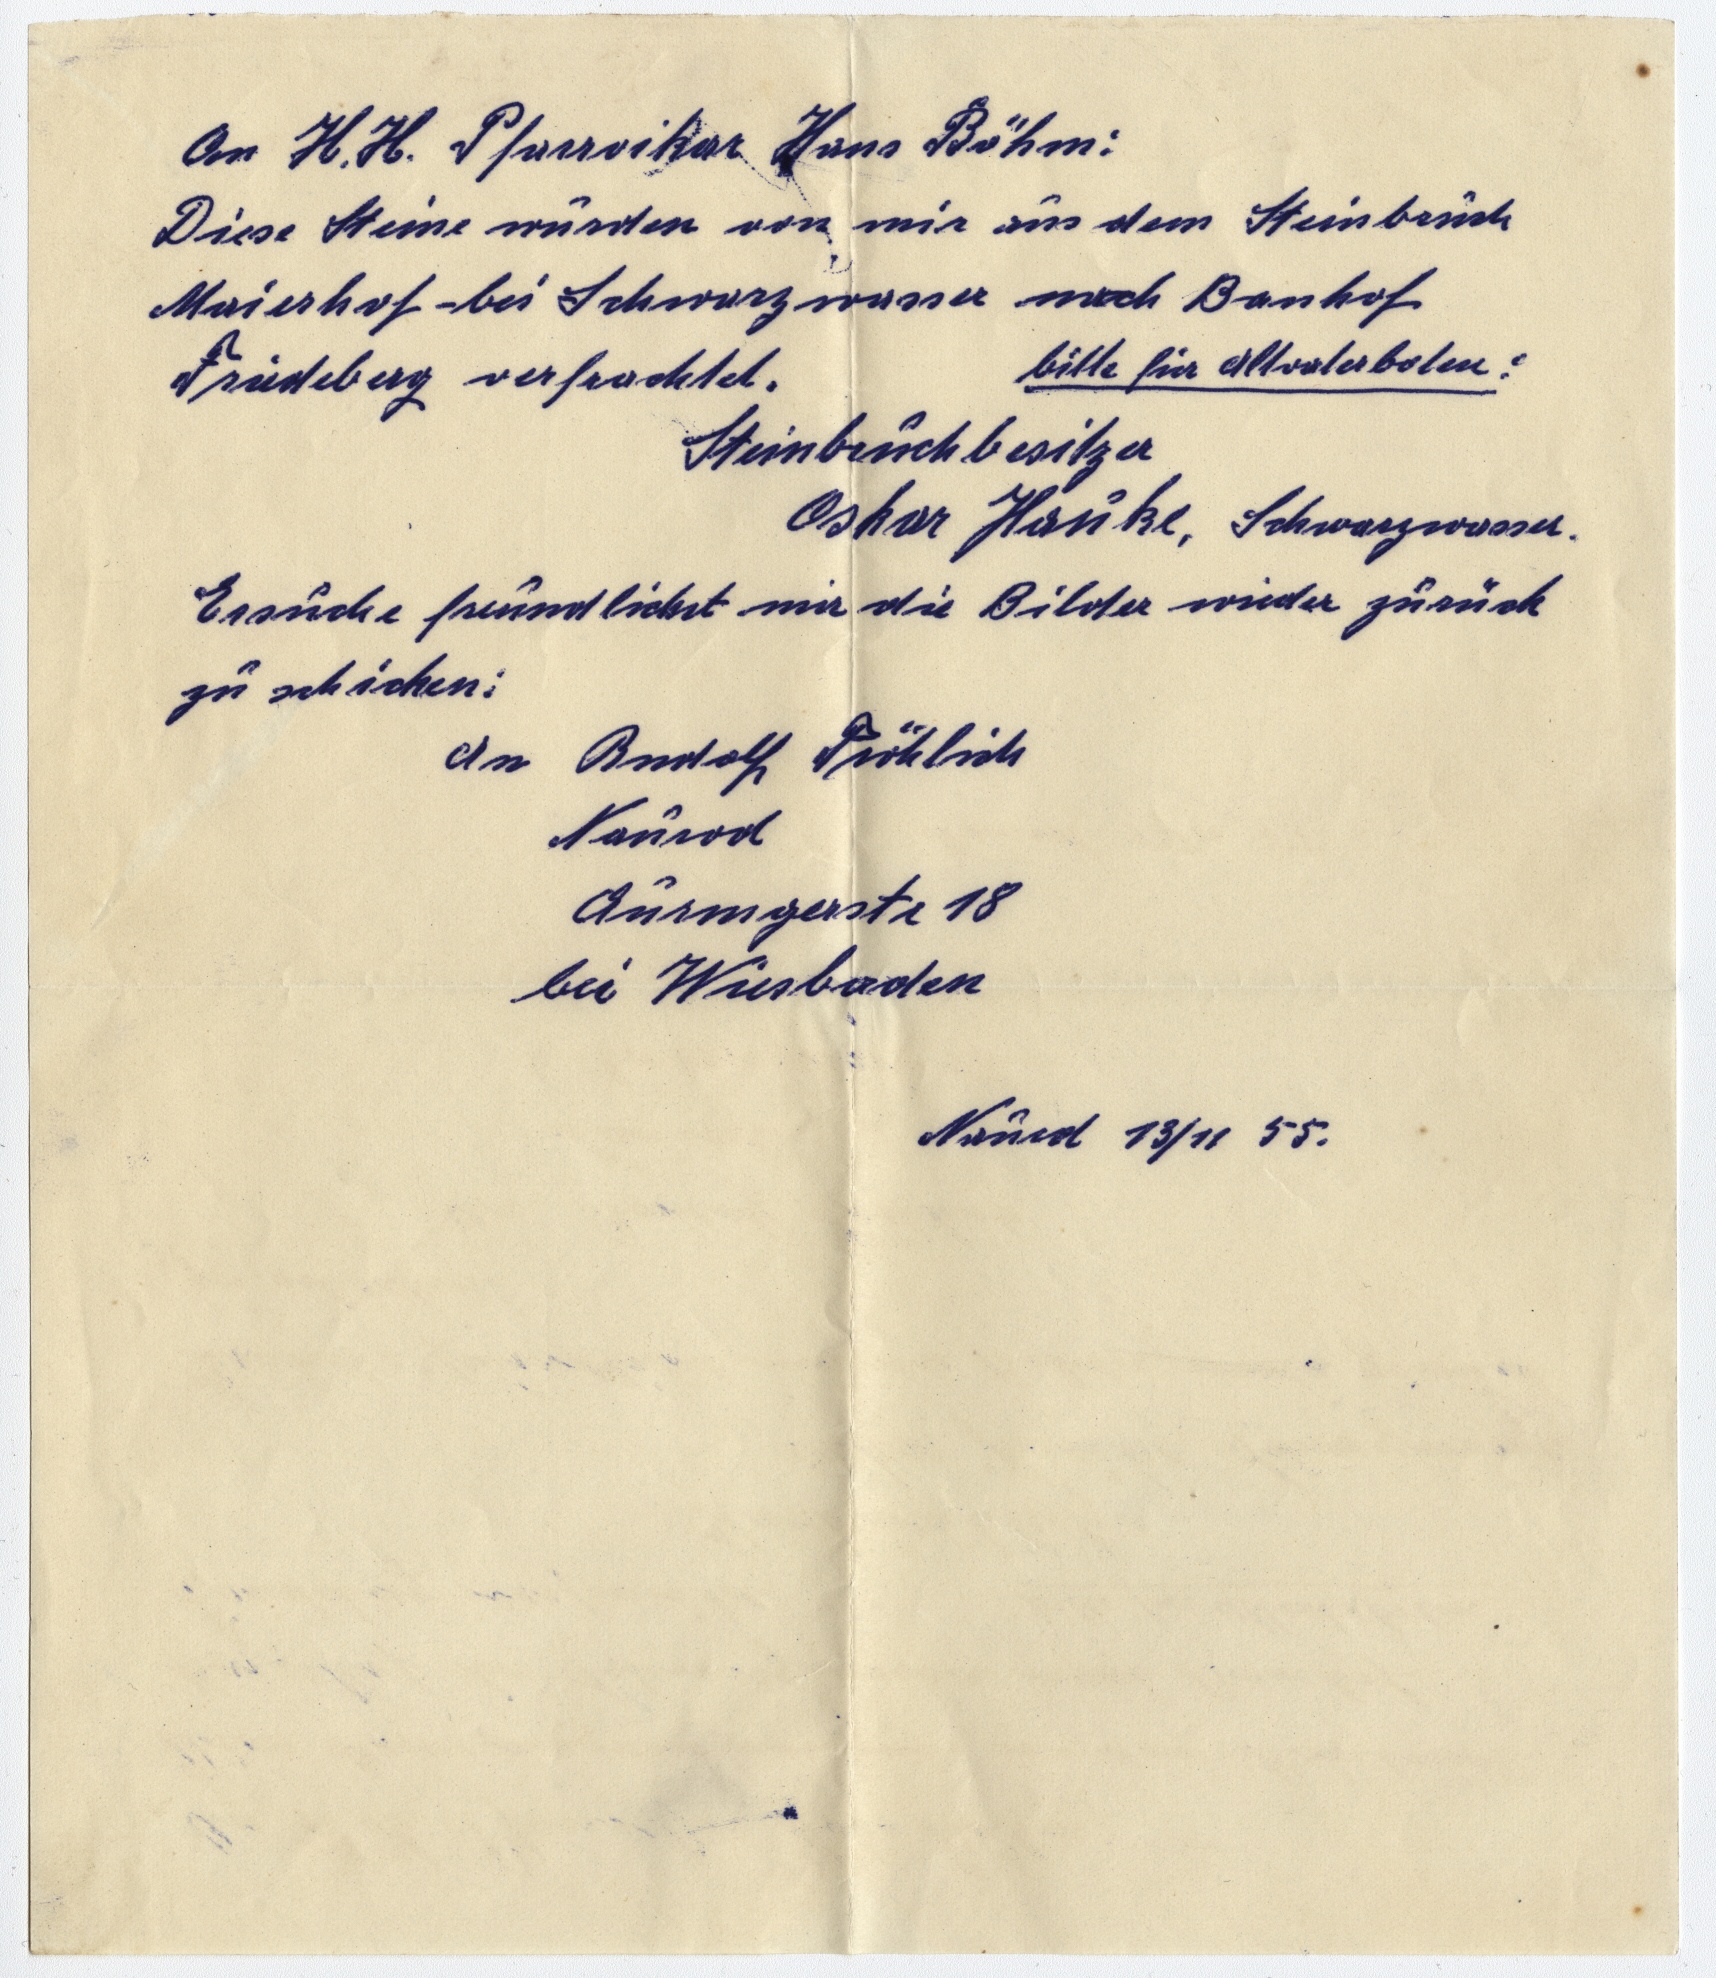 An H.H. Pfarrvikar Hans Böhm:
Diese Steine wurden von mir aus dem Steinbruch
Maierhof bei Schwarzwasser nach Banhof
Friedeberg verfrachtet.
bitte für Altvaterboten:
Steinbruchbesitzer
Oskar Hauke, Schwarzwasser.
Ersuche freundlichst mir die Bilder wieder zurück
zu schicken:
An Rudolf Fröhlich
Naurod
18
bei Wiesbaden
Naurod 13/11 55.